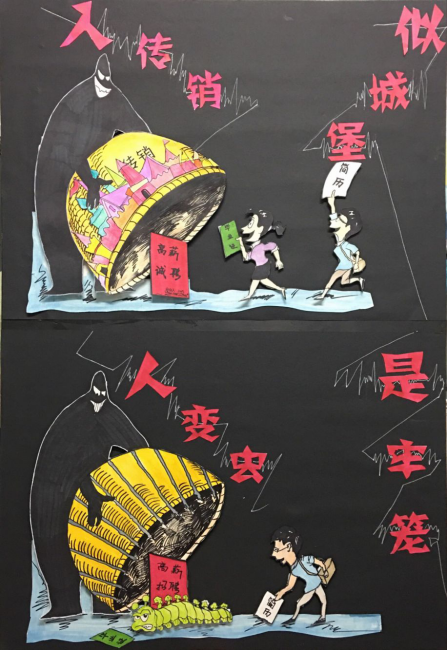 入传销
似城堡
传销
高薪
诚聘
毕业证
简历
人变虫
是牢笼
高薪
招聘
简历